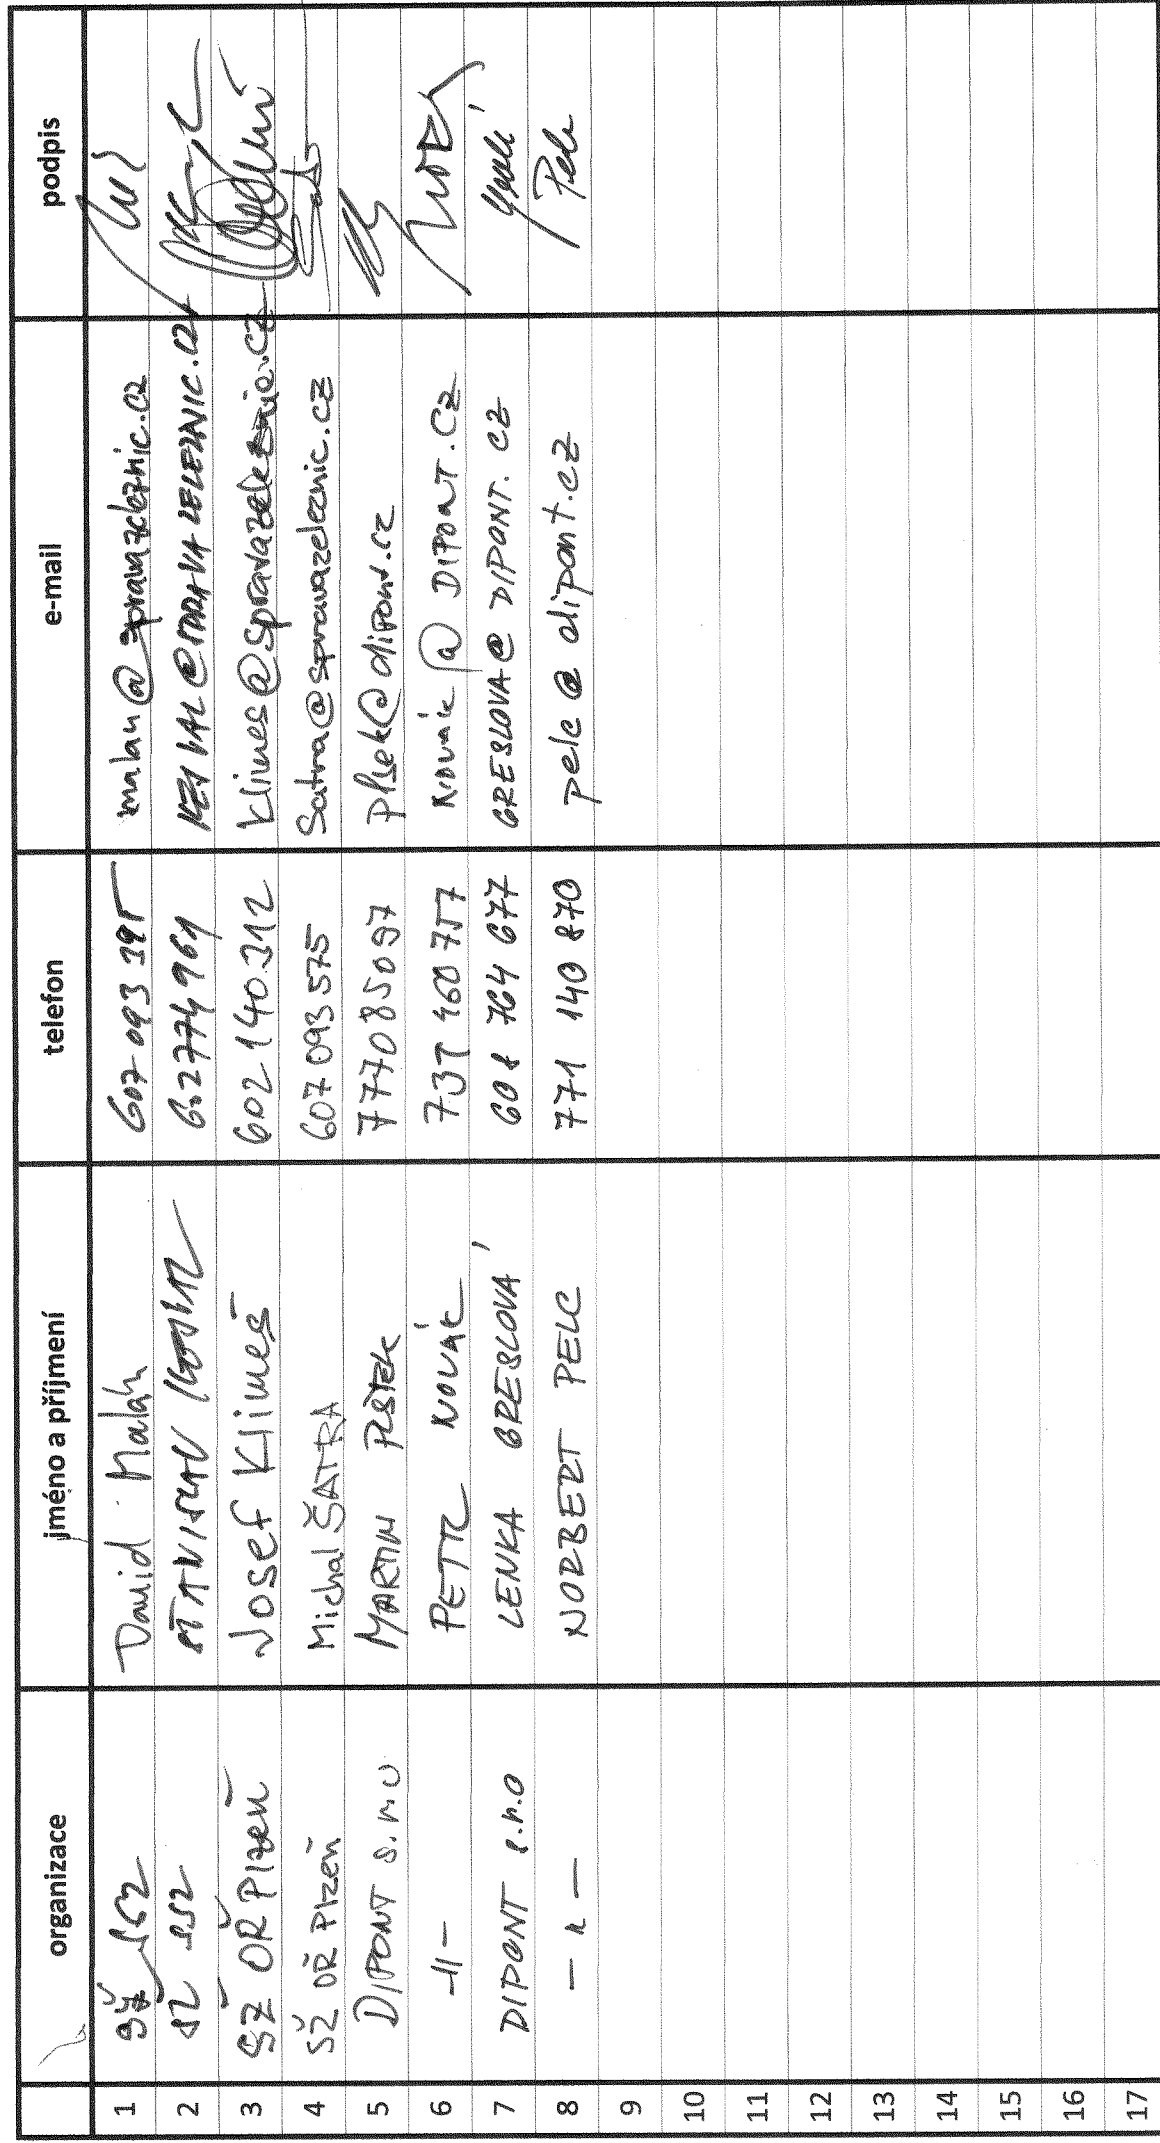 organizace jméno a příjmení telefon e-mail podpis
1 SŽ David Malák 607 093 395 malan@spravazeleznic.cz
2 SŽ
3 SŽ OŘ Plzeň Josef Klimeš 602 140.312 klimes@spravazeleznic.cz
4 SŽ OŘ Plzeň Michal ŠATRA 607 093 575 Satra@spravazeleznic.cz
5 DIPONT s.r.o MARTIN PLŠEK 777085097 plsek@dipont.cz
6 -||- PETR NOVÁK 737 460 757 novak@DIPONT.CZ
7 DIPONT s.r.o LENKA GRESLOVÁ 608 764 677 GRESLOVA@DIPONT.CZ
8 - || - NORBERT PELC 771 140 870 pelc@dipont.cz Pelc
9
10
11
12
13
14
15
16
17